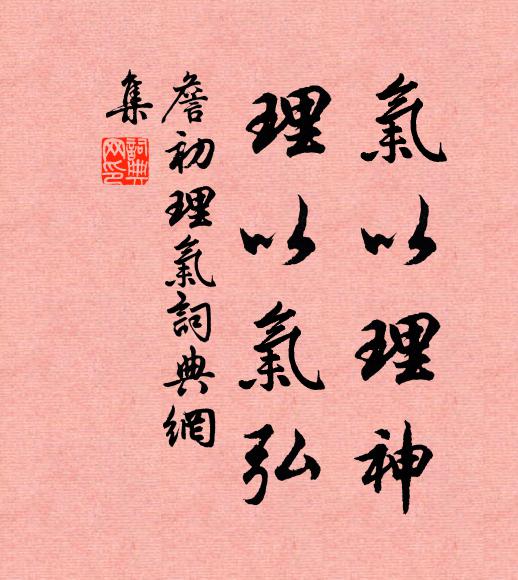 氣以理神
理以氣弘
詹初理氣詞典網
集
詞典網印